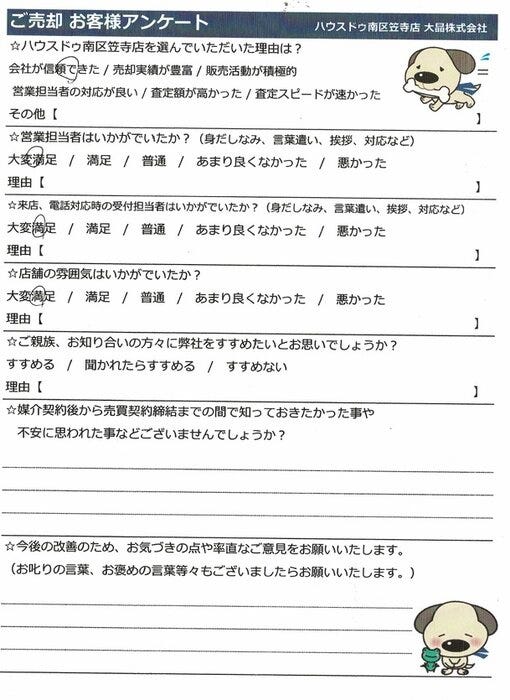 ご売却 お客様アンケート ハウスドゥ南区笠寺店 大晶株式会社
☆ハウスドゥ南区笠寺店を選んでいただいた理由は?
会社が信頼できた / 売却実績が豊富 / 販売活動が積極的
営業担当者の対応が良い / 査定額が高かった / 査定スピードが速かった
その他【 】
☆営業担当者はいかがでいたか?(身だしなみ、言葉遣い、挨拶、対応など)
大変満足 / 満足 / 普通 / あまり良くなかった / 悪かった
理由【 】
☆来店、電話対応時の受付担当者はいかがでいたか?(身だしなみ、言葉遣い、挨拶、対応など)
大変満足 / 満足 / 普通 / あまり良くなかった / 悪かった
理由【 】
☆店舗の雰囲気はいかがでいたか?
大変満足 / 満足 / 普通 / あまり良くなかった / 悪かった
理由【 】
☆ご親族、お知り合いの方々に弊社をすすめたいとお思いでしょうか?
すすめる / 聞かれたらすすめる / すすめない
理由【 】
☆媒介契約後から売買契約締結までの間で知っておきたかった事や
不安に思われた事などございませんでしょうか?
☆今後の改善のため、お気づきの点や率直なご意見をお願いいたします。
(お叱りの言葉、お褒めの言葉等々もございましたらお願いいたします。)